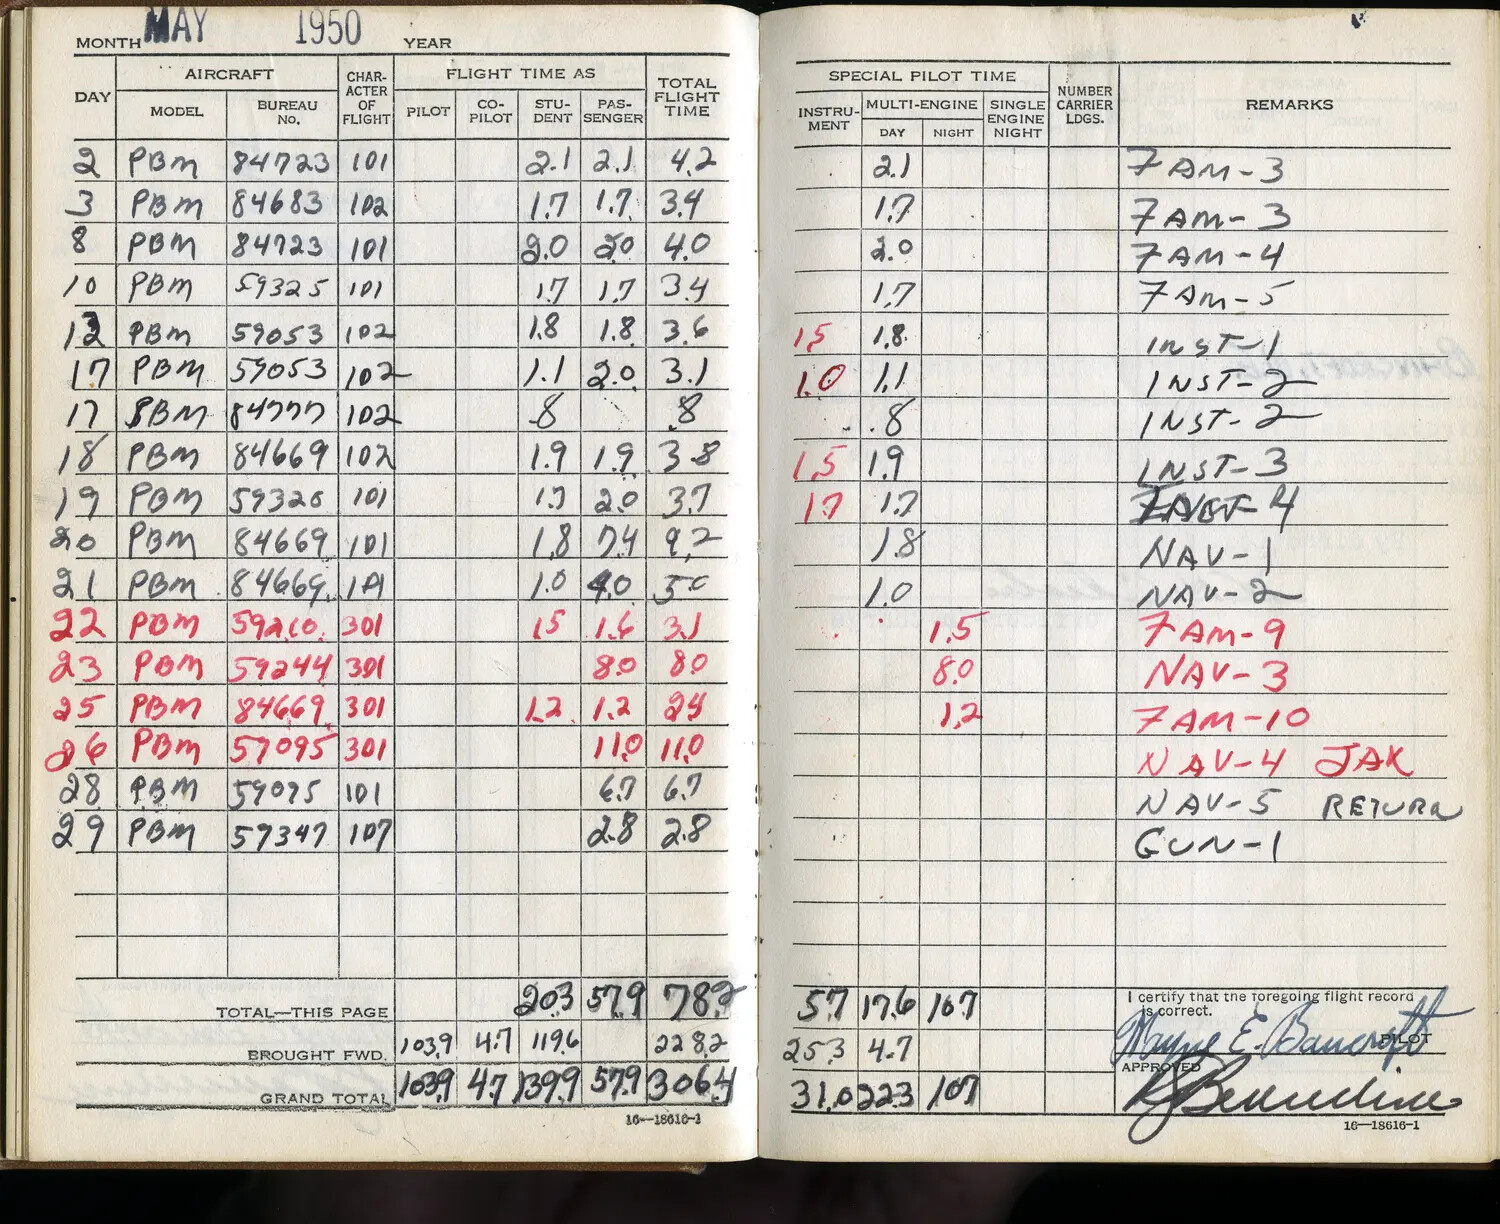 MONTH MAY 1950 YEAR
DAY AIRCRAFT CHARACTER OF FLIGHT FLIGHT TIME AS TOTAL FLIGHT TIME SPECIAL PILOT TIME NUMBER CARRIER LDGS. REMARKS
MODEL BUREAU No. PILOT CO-PILOT STUDENT PASSENGER INSTRUMENT MULTI-ENGINE SINGLE ENGINE NIGHT
DAY NIGHT
2 PBM 84723 101 2.1 2.1 4.2 2.1 FAM-3
3 PBM 84683 102 1.7 1.7 3.4 1.7 FAM-3
8 PBM 84723 101 2.0 2.0 4.0 2.0 FAM-4
10 PBM 59325 101 1.7 1.7 3.4 1.7 FAM-5
PBM 59053 102 1.8 1.8 3.6 1.5 1.8 INST-1
17 PBM 59053 102 1.1 2.0 3.1 1.0 1.1 INST-2
17 PBM 84777 102 .8 .8 .8 INST-2
18 PBM 84669 102 1.9 1.9 3.8 1.5 1.9 INST-3
19 PBM 59326 101 1.7 2.0 3.7 1.7 1.7
20 PBM 84669 101 1.8 7.4 9.2 1.8 NAV-1
21 PBM 84669 101 1.0 4.0 5.0 1.0 NAV-2
22 PBM 59210 301 1.5 1.6 3.1 1.5 FAM-9
23 PBM 59244 301 8.0 8.0 8.0 NAV-3
25 PBM 84669 301 1.2 1.2 2.4 1.2 FAM-10
26 PBM 57095 301 11.0 11.0 NAV-4 JAX
28 PBM 59095 101 6.7 6.7 NAV-5 RETURN
29 PBM 57347 107 2.8 2.8 GUN-1
TOTAL—THIS PAGE 20.3 57.9 78.2 5.7 17.6 10.7
I certify that the foregoing flight record is correct.
BROUGHT FWD. 103.9 4.7 119.6 228.2 25.3 4.7
Wayne E. Bancroft PILOT
GRAND TOTAL 103.9 4.7 139.9 57.9 306.4 31.0 22.3 10.7
APPROVED
16—18616-1 16—18616-1